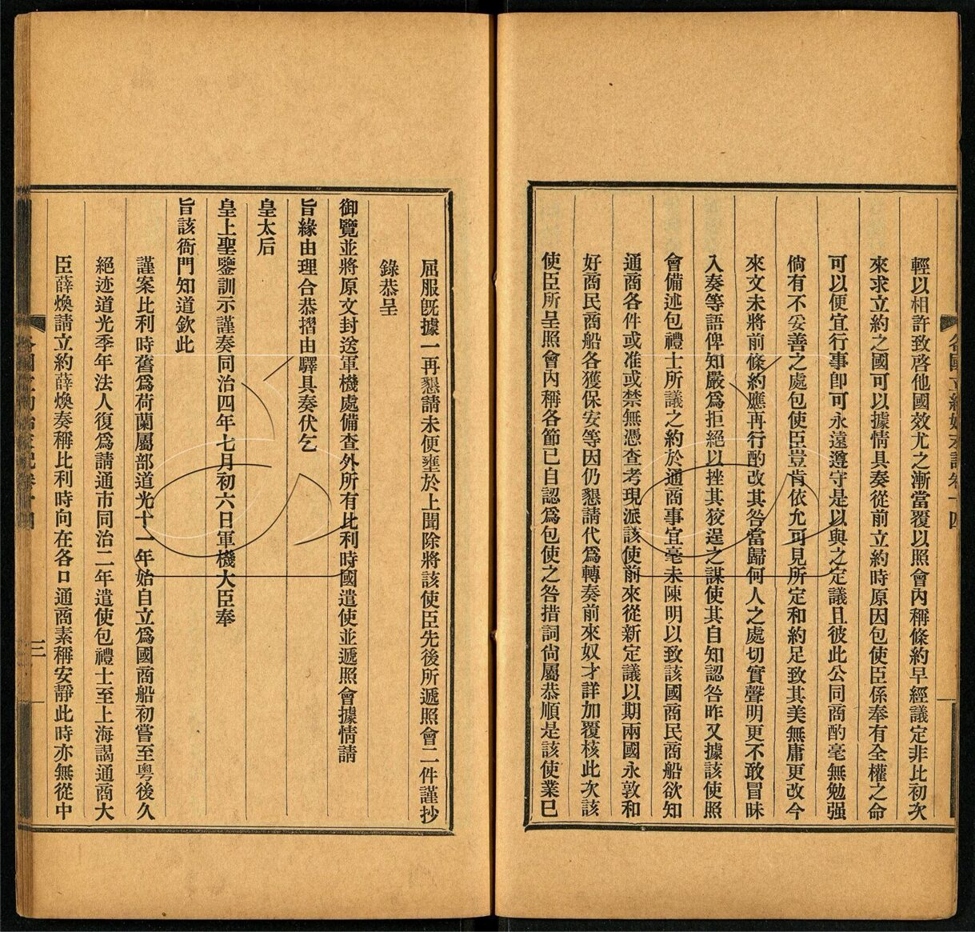 輕以相許致啓他國效尤之漸當覆以照會內稱條約早經議定非比初次
來求立約之國可以據情具奏從前立約時原因包使臣係奉有全權之命
可以便宜行事卽可永遠遵守是以與之定議且彼此公同商酌毫無勉强
倘有不妥善之處包使臣豈肯依允可見所定和約足致其美無庸更改今
來文未將前條約應再行酌改其咎當歸何人之處切實聲明更不敢冒昧
入奏等語俾知嚴爲拒絕以挫其狡逞之謀使其自知認咎昨又據該使照
會備述包禮士所議之約於通商事宜毫未陳明以致該國商民商船欲知
通商各件或准或禁無憑查考現派該使前來從新定議以期兩國永敦和
好商民商船各獲保安等因仍懇請代爲轉奏前來奴才詳加覆核此次該
使臣所呈照會內稱各節已自認爲包使之咎措詞尙屬恭順是該使業已
屈服旣據一再懇請未便壅於上聞除將該使臣先後所遞照會二件謹抄
錄恭呈
御覽並將原文封送軍機處備查外所有比利時國遣使並遞照會據情請
旨緣由理合恭摺由驛具奏伏乞
皇太后
皇上聖鑒訓示謹奏同治四年七月初六日軍機大臣奉
旨該衙門知道欽此
謹案比利時舊爲荷蘭屬部道光十一年始自立爲國商船初嘗至粤後久
絕迹道光季年法人復爲請通市同治二年遣使包禮士至上海謁通商大
臣薛煥請立約薛煥奏稱比利時向在各口通商素稱安靜此時亦無從中
三